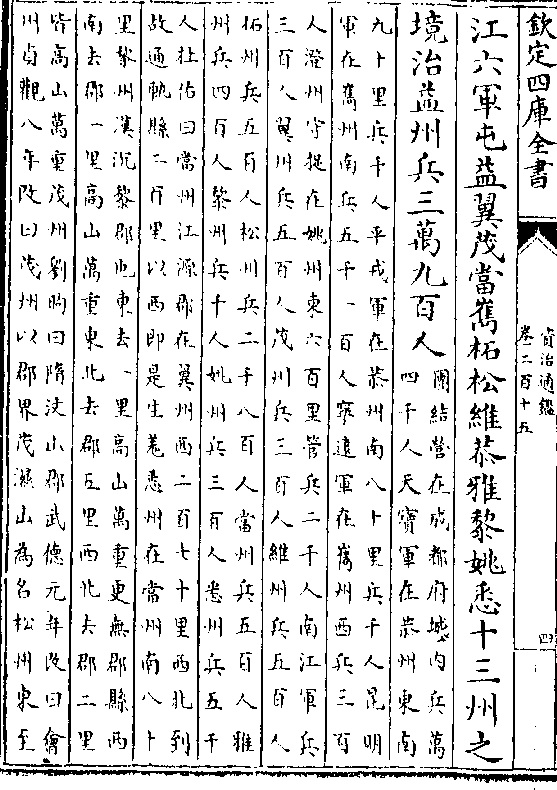 欽定四庫全書
資治通鑑
卷二百十五
四
江六軍屯益翼茂當嶲柘松維恭雅黎姚悉十三州之
境治益州兵三萬九百人
團結營在成都府城内兵萬
四千人天寶軍在恭州東南
九十里兵千人平戎軍在恭州南八十里兵千人昆明
軍在嶲州南兵五千一百人寧逺軍在嶲州西兵三百
人澄州守捉在姚州東六百里管兵二千人南江軍兵
三百人翼州兵五百人茂州兵三百人維州兵五百人
柘州兵五百人松州兵二千八百人當州兵五百人雅
州兵四百人黎州兵千人姚州兵三百人悉州兵五千
人杜佑曰當州江源郡在翼州西二百七十里西北到
故通軌縣二百里以西即是生羌悉州在當州南八十
里黎州漢沉黎郡也東去一里高山萬重更無郡縣西
南去郡一里高山萬重東北去郡五里西北去郡二里
皆高山萬重茂州劉昫曰隋汶山郡武德元年改曰會
州貞觀八年改曰茂州以郡界茂濕山為名松州東至